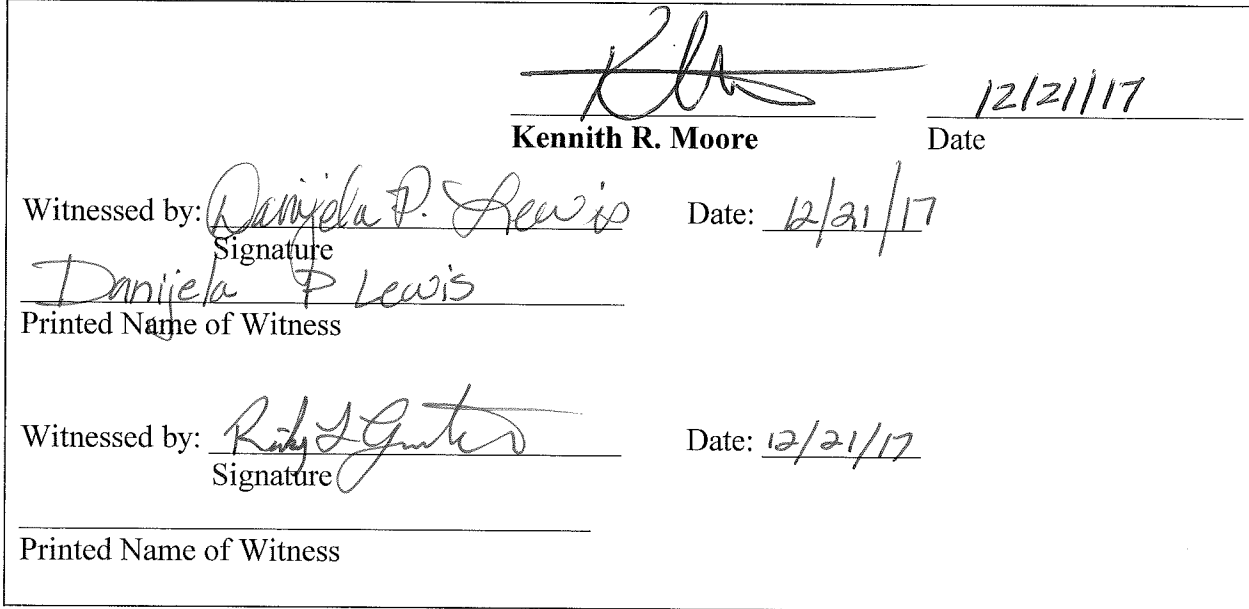 12/21/17
Kennith R. Moore Date
Witnessed by: Danijela P. Lewis Date: 12/21/17
Signature
Danijela P Lewis
Printed Name of Witness
Witnessed by: Date: 12/21/17
Signature
Printed Name of Witness